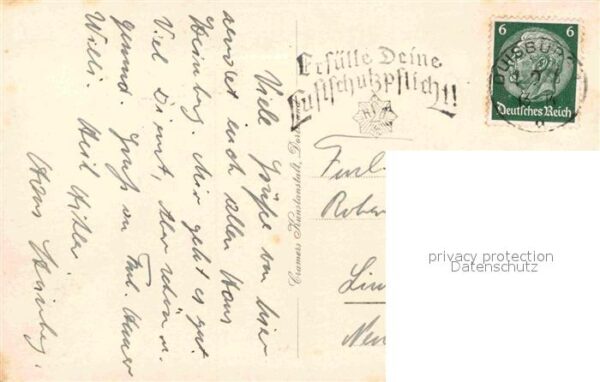 Viele Grüße von hier
sendet euch allen Hans
Steinberg. Mir geht es gut.
Viel Dienst, aber schön u.
gesund. Gruß an Faml.
Willi. Heil Hitler
Hans Steinberg.
Erfülle Deine
Luftschutzpflicht!
6 6
Deutsches Reich
DUISBURG
Faml.
Rober
Lin
Neu
privacy protection
Datenschutz